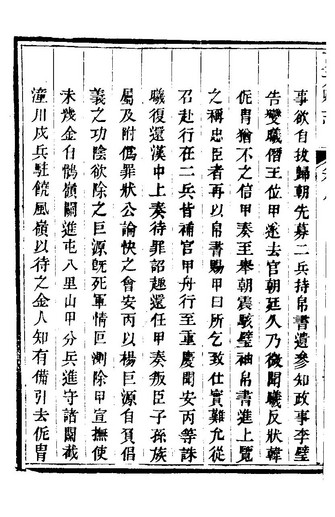 事欲自拔歸朝先募二兵持帛書遺參知政事李壁
告變曦僭王位甲遂去官朝廷久乃微聞曦反狀韓
侂胄猶不之信甲奏至舉朝震駭壁袖帛書進上覽
之稱忠臣者再以帛書賜甲曰所乞致仕實難允從
召赴行在二兵皆補官甲舟行至重慶聞安丙等誅
曦復還漢中上奏待罪詔趣還任甲奏叛臣子孫族
屬及附僞罪狀公論快之會安丙以楊巨源自負倡
義之功陰欲除之巨源旣死軍情叵測除甲宣撫使
未幾金自鶻嶺關進屯八里山甲分兵進守諸關截
潼川戍兵駐饒風嶺以待之金人知有備引去侂胄